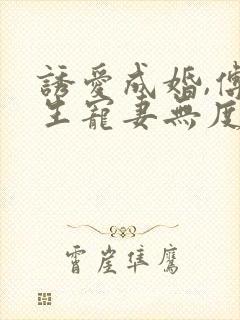 誘愛成婚,傅
生寵妻無度
霄崖隼鷹